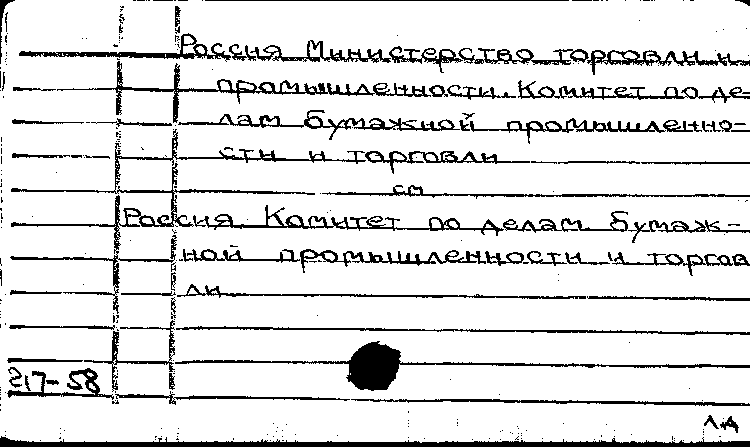 Россия Министерство торговли и
промышленности. Комитет по де-
лам бумажной промышленно-
сти и торговли
см
Россия. Комитет по делам бумаж-
ной промышленности и торгов
ли
217-58